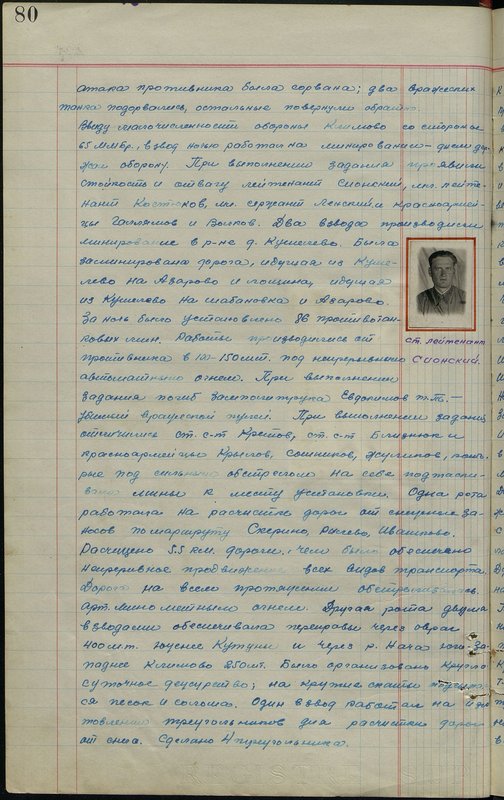 80
атака противника была сорвана; два вражеских
танка подорвались, остальные повернули обратно.
Ввиду малочисленности обороны Климово со стороны
65 ММбр, взвод ночью работал на минировании - днем дер-
жал оборону. При выполнении задания проявили
стойкость и отвагу лейтенант Сионский, мл. лейте-
нант Костюков, мл. сержант Ленский и красноармей-
цы Галлямов и Волков. Два взвода производили
минирование в р-не д. Кушелево. Была
заминирована дорога, идущая из Куше-
лево на Азарово и лощина, идущая
из Кушелево на Шабановка и Азарово.
За ночь было установлено 86 противотан-
ковых мин. Работы производились от
противника в 100-150 мт. под непрерывным
автоматным огнем. При выполнении
задания погиб зам политрука Евдокимов т.т. —
убитый вражеской пулей. При выполнении задания
отличились ст. с-т Кретов, ст. с-т Близнюк и
красноармейцы Крылов, Сошников, Жулимов, кото-
рые под сильным обстрелом на себе подтаски-
вали мины к месту установки. Одна рота
работала на расчистке дорог от снежных за-
носов по маршруту Скерино, Ивашково.
Расчищено 5.5 км. дороги, чем было обеспечено
непрерывное продвижение всех видов транспорта.
Дорога на всем протяжении обстреливалась
арт. минометным огнем. Другая рота двумя
взводами обеспечивала переправы через овраг
400 мт. южнее Кутуки и через р. Нача юго за-
паднее Климово 250 мт. Было организовано кругло
суточное дежурство; на крутые скаты
ся песок и солома. Один взвод работал на
товлении треугольников для расчистки дорог
от снега. Сделано 4 треугольника.
ст. лейтенант
Сионский.